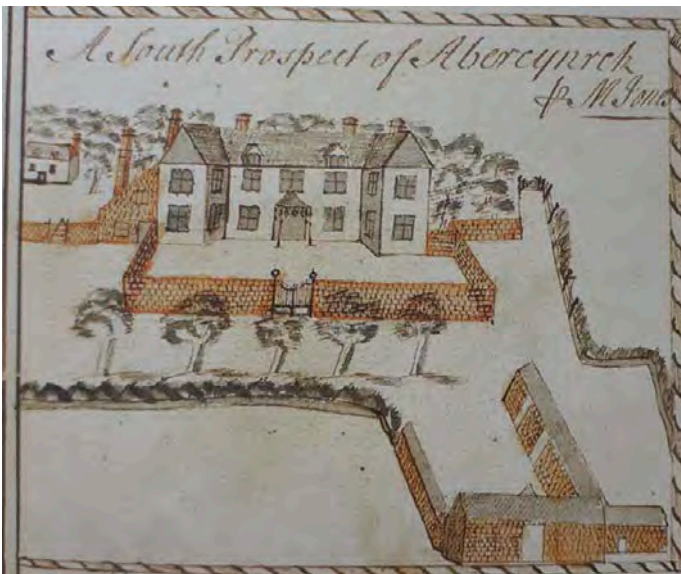 A South Prospect of Abercynrck
& M Jones